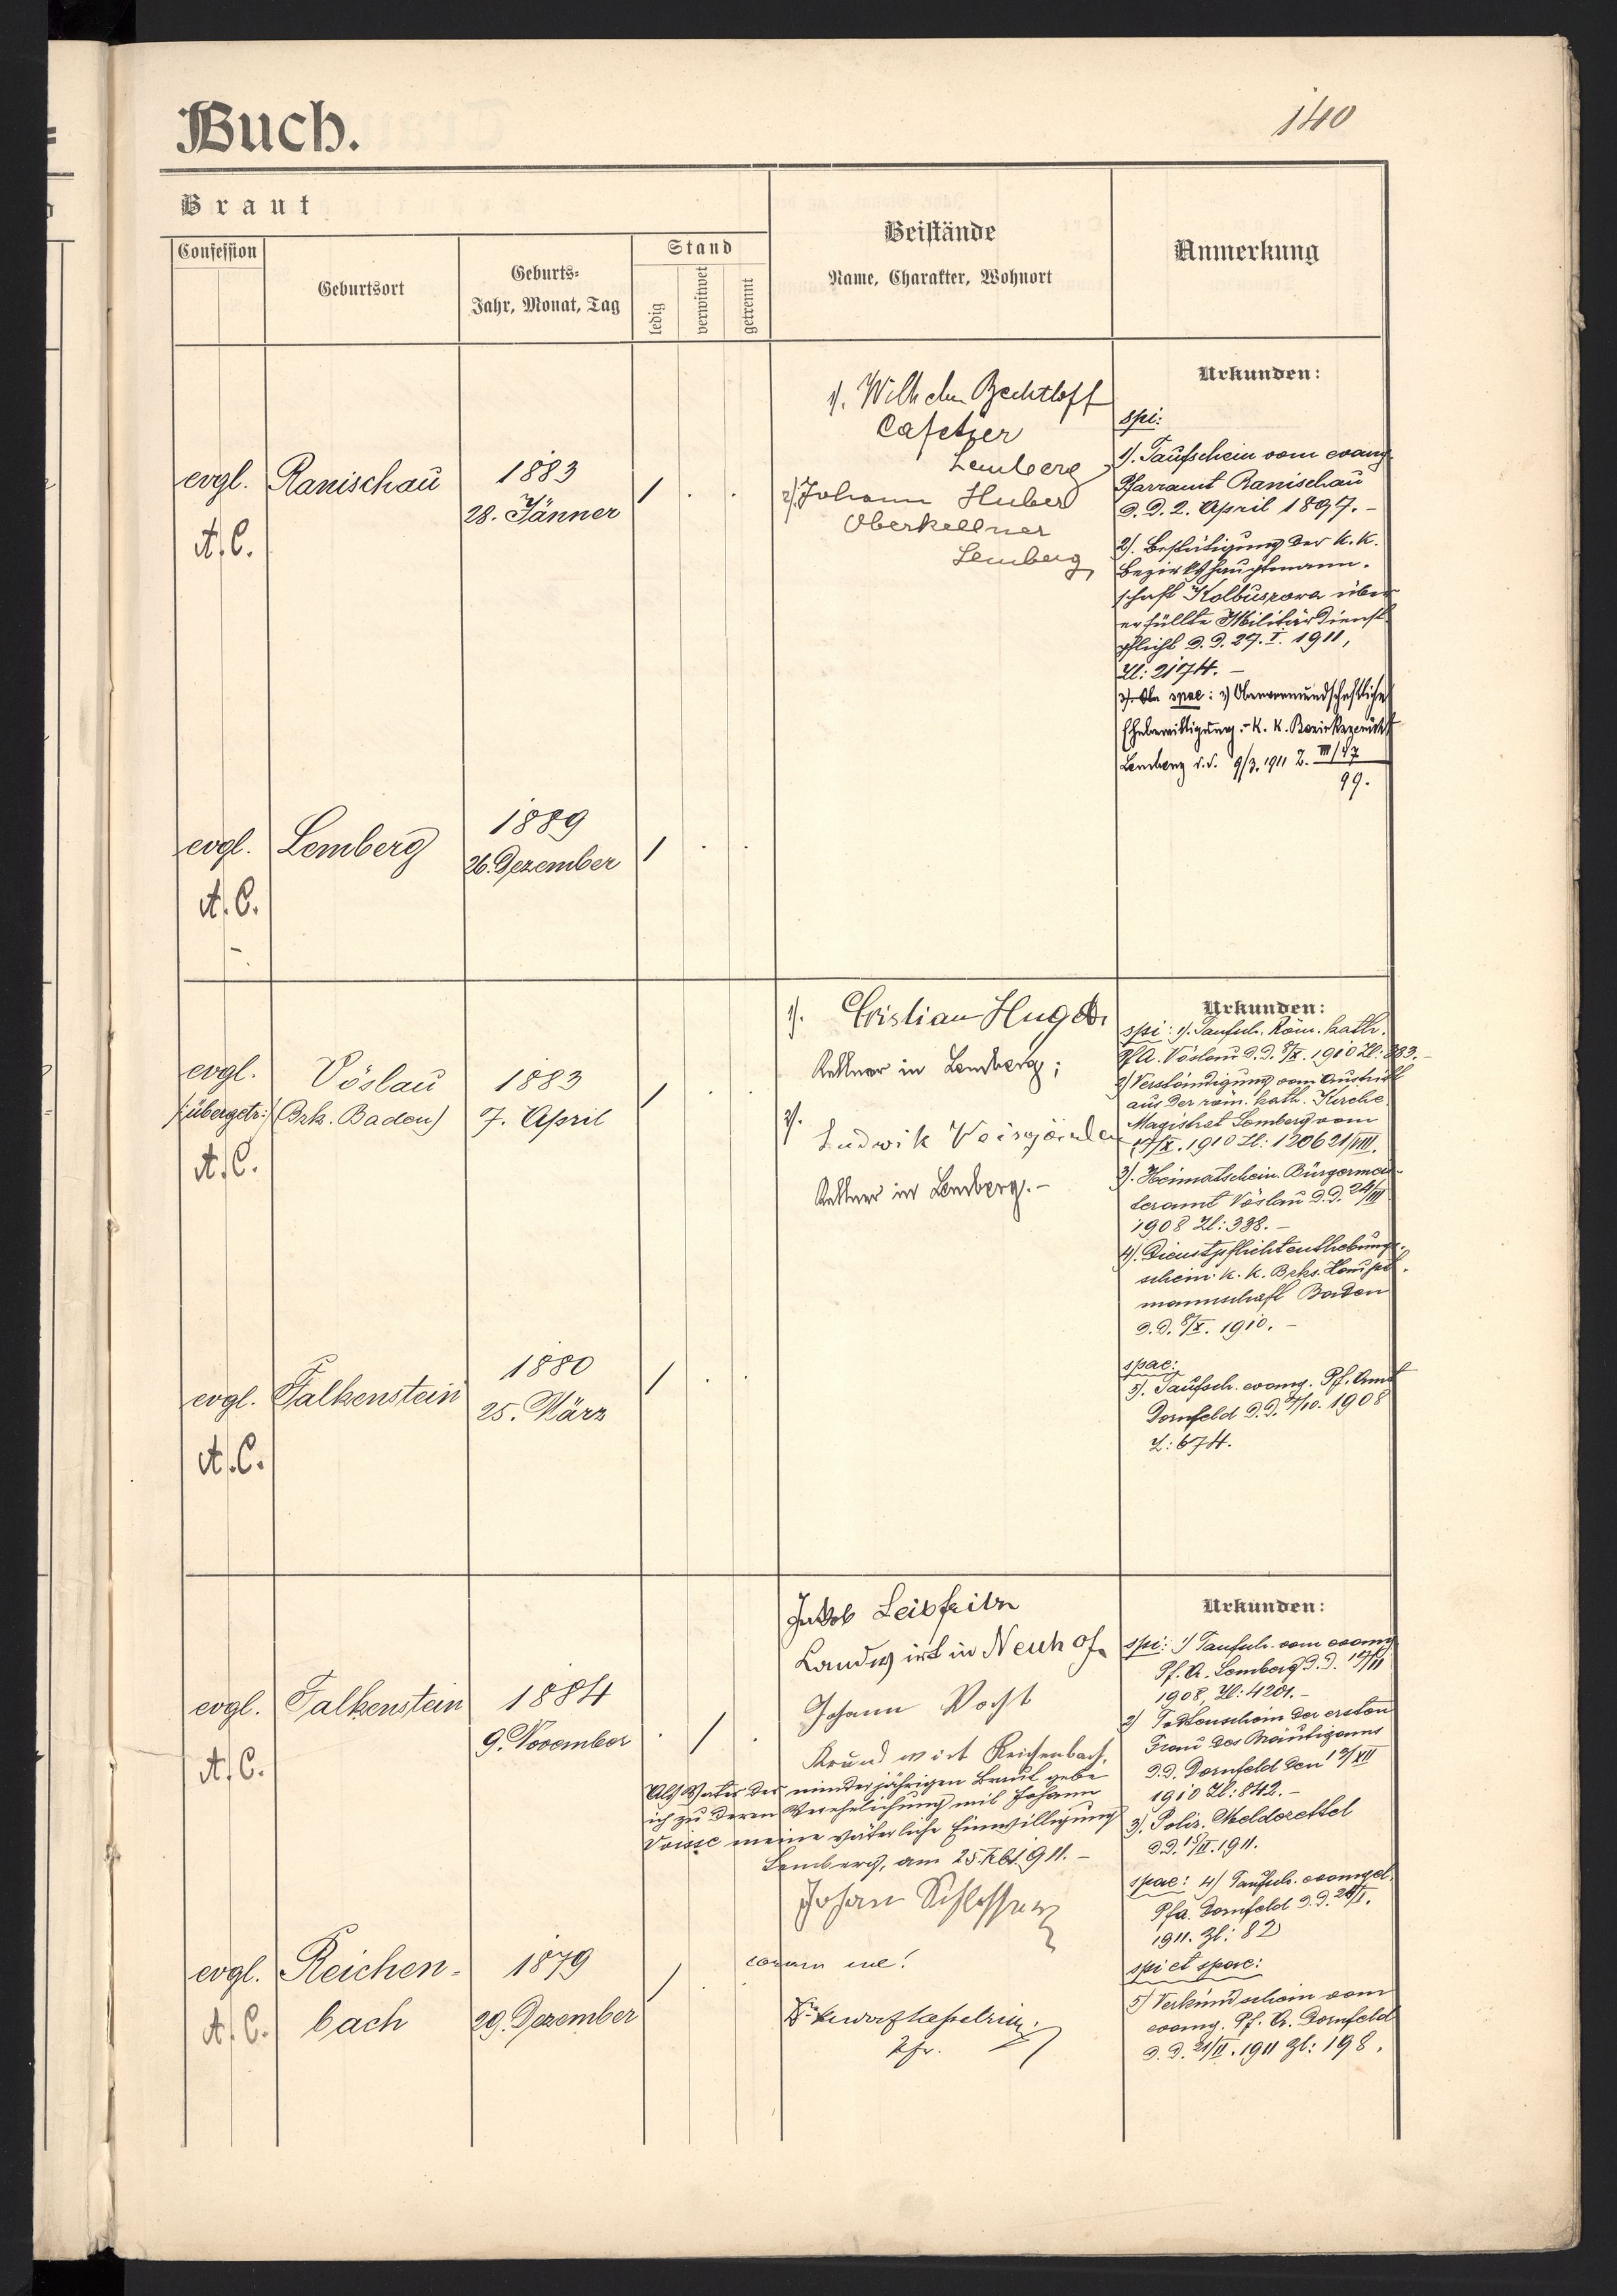 Buch.
140
Braut
Confession
Geburtsort
Geburts-
Jahr, Monat, Tag
Stand
ledig
verwitwet
getrennt
Beistände
Name, Charakter, Wohnort
Anmerkung
evgl.
A. C.
Ranischau
1883
28. Jänner
1/. Wilhelm Bechtloff
Cafetier
Lemberg
2/. Johann Huber
Oberkellner
Lemberg
Urkunden:
spi:
1/. Taufschein vom evang.
Pfarramt Ranischau
d. d. 2. April 1897. -
2/. Bestätigung der k. k.
Bezirkshauptmann-
schaft Kolbuszowa über
erfüllte Militärdienst
pflicht d. d. 27. I. 1911,
Zl: 2174. -
spae: 3) Obervormundschaftliche
Ehebewilligung. - k. k. Bezirksgericht
Lemberg d. d. 9/3. 1911 Z. III/47
99.
evgl.
A. C.
Lemberg
1889
26. Dezember
evgl.
/:übergetr:/
A. C.
Vöslau
(Bzk. Baden)
1883
7. April
1/. Cristian
Kellner in Lemberg;
2/. Ludwik
Kellner in Lemberg. -
Urkunden:
spi: 1/. Taufsch. Röm. kath.
Pf. A. Vöslau d. d. 8/X. 1910 Zl: 383. -
2/ Verständigung vom Austritt
aus der röm. kath. Kirche
Magistrat Lemberg vom
/X. 1910 Zl: 120621/VIII.
3/. Heimatschein Bürgermei-
steramt Vöslau d. d. 24/III
1908 Zl: 338. -
4/. Dienstpflichtenthebungs-
schein k. k. Bzks. Haupt-
mannschaft Baden
d. d. 8/X. 1910. -
spae:
5/. Taufsch. evang. Pf. Amt
Dornfeld d. d. /10. 1908
Z: 674.
evgl.
A. C.
Falkenstein
1880
25. März
evgl.
A. C.
Falkenstein
1884
9. November
Jakob Leibfritz
Landwirt in Neuhof.
Johann Vogt
Grundwirt Reichenbach.
Als Vater der minderjährigen Braut gebe
ich zu deren Verehelichung mit Johann
meine väterliche Einwilligung
Lemberg, am 25. Feb. 1911. -
Johan Schlosser
coram me!
Pfr.
Urkunden:
spi: 1/ Taufsch. vom evang.
Pf. A. Lemberg d. d. /II
1908, Zl: 4201. -
2/ Totenschein der ersten
Frau des Bräutigams
d. d. Dornfeld den /XII
1910 Zl: 842. -
3/. Poliz. Meldezettel
d. d. /II. 1911.
spae: 4/ Taufsch. evangel.
Pfa. Dornfeld d. d. 26/I.
1911. Zl: 82
spi et spae:
5/ Verkündschein vom
evang. Pf. A. Dornfeld
d. d. 21/II. 1911 Zl: 198.
evgl.
A. C.
Reichen-
bach
1879
29. Dezember